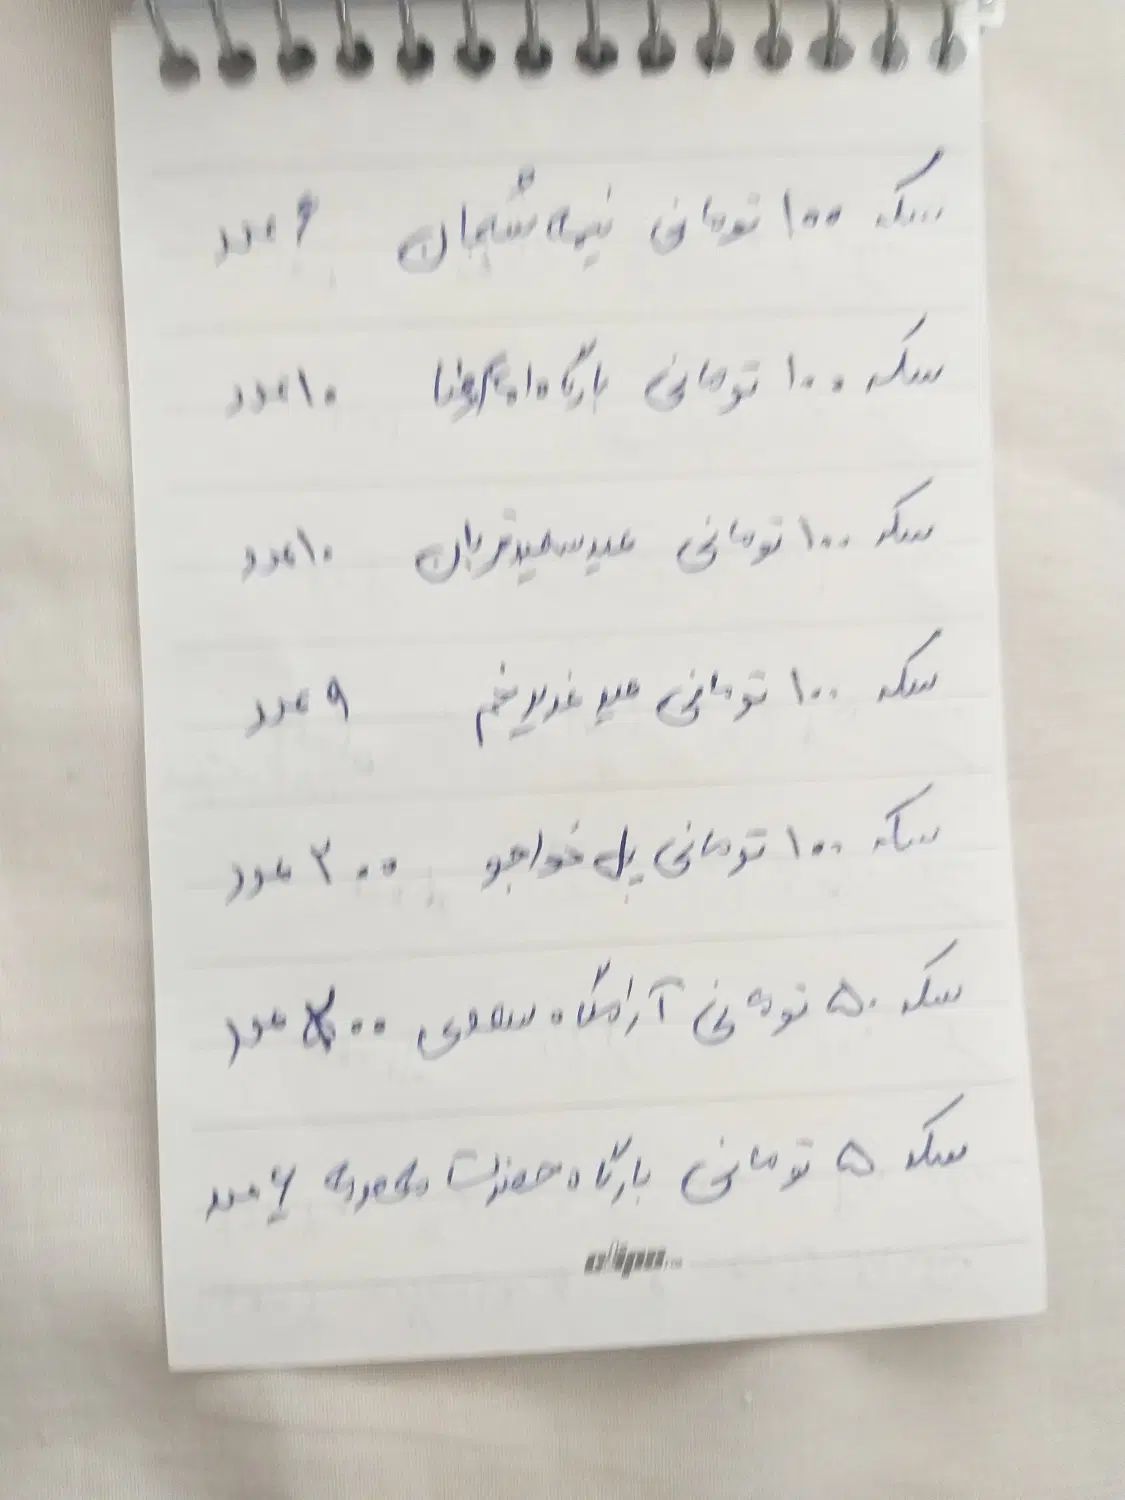 سکه ۱۰۰ تومانی نیمه شعبان ۶ عدد
سکه ۱۰۰ تومانی بارگاه امام رضا ۱۰ عدد
سکه ۱۰۰ تومانی عید سعید قربان ۱۰ عدد
سکه ۱۰۰ تومانی عید غدیر خم ۹ عدد
سکه ۱۰۰ تومانی پل خواجو ۲۰۰ عدد
سکه ۵۰ تومانی آرامگاه سعدی ۰۰ عدد
سکه ۵ تومانی بارگاه حضرت معصومه ۶ عدد
clips